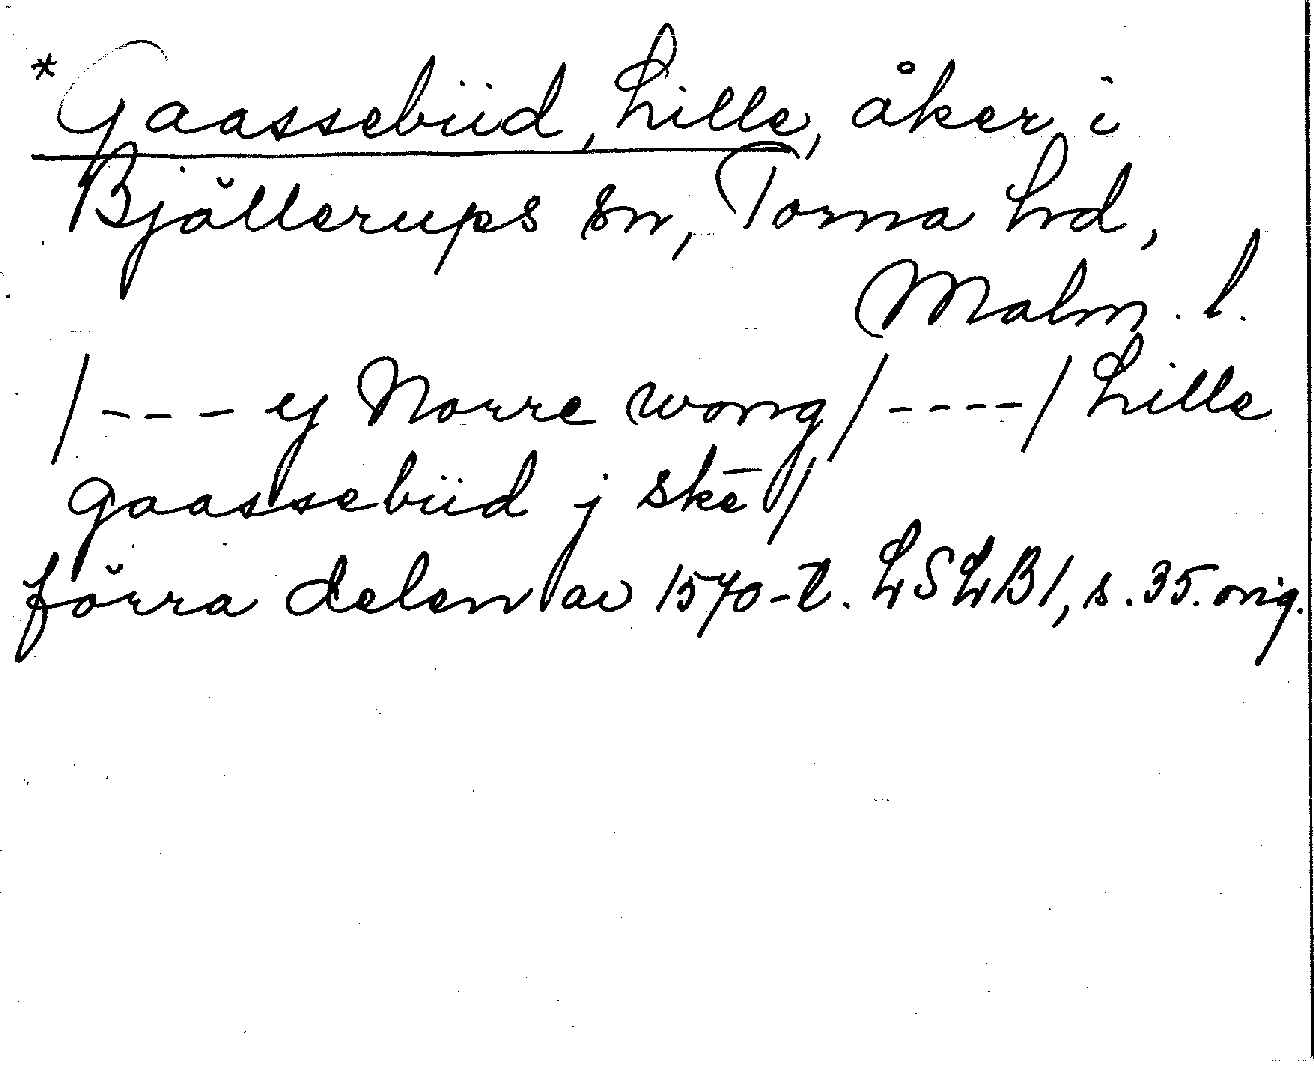 *Gaassebiid, Lille, åker i
Bjällerups sn, Torna hd,
Malm. l.
/--- ey Norre wong/----/Lille
gaassebiid j skē/
förra delen av 1570-t. LSLB1, s.35.orig.